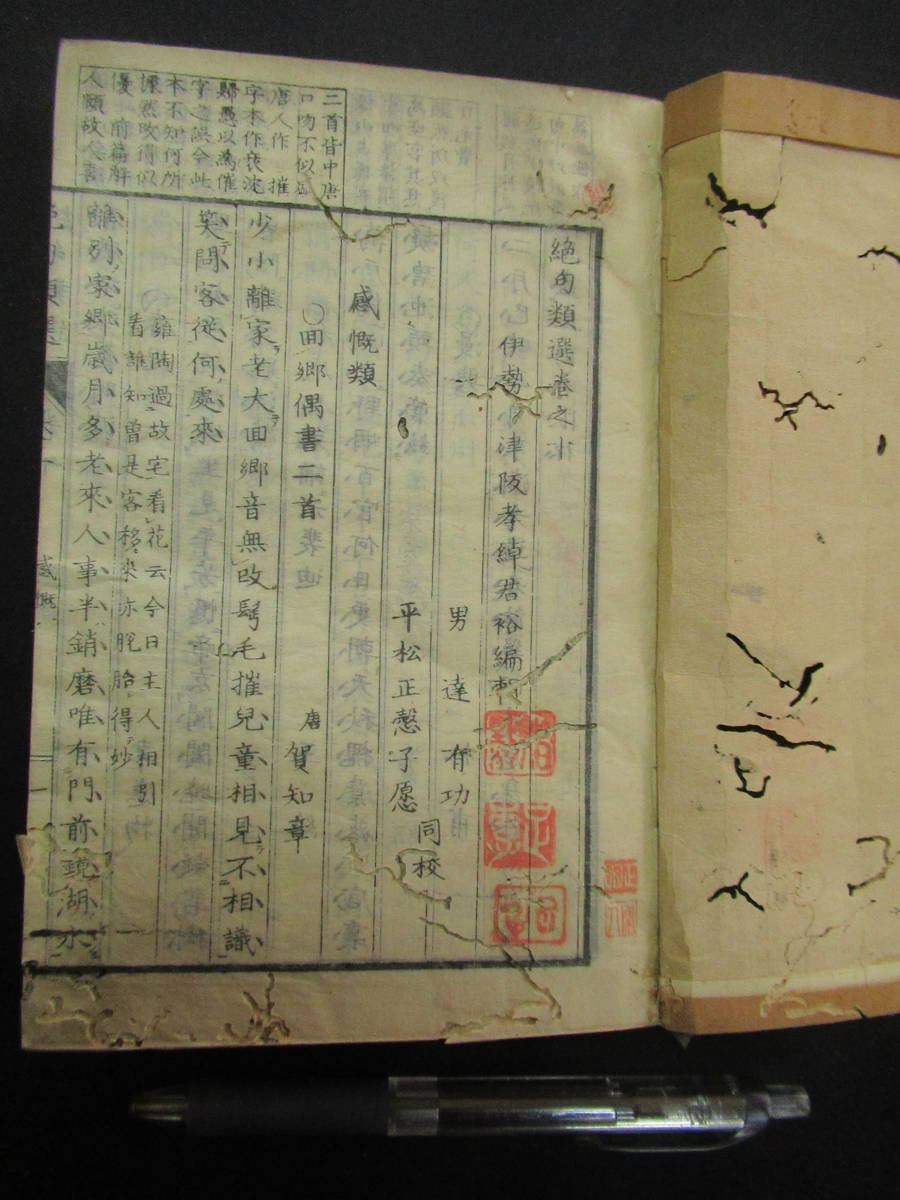 絶句類選卷之
伊勢 津阪孝綽君裕編輯
男 達 有功
平松正慤子愿 同校
感慨類
〇囬鄉偶書二首 唐 賀知章
少小離家老大囬鄉音無改鬢毛摧兒童相見不相識
笑問客從何處來
雍陶過故宅看花云今日主人相引
看誰知曾是客移來亦脫胎得妙
離別家鄉歲月多老來人事半銷磨唯有門前鏡湖水
二首皆中唐
口吻不似盛
唐人作 摧
字本作衰沈
歸愚以為催
字之誤今此
本不知何所
據然改得似
優 前篇解
人頤故人喜
感慨